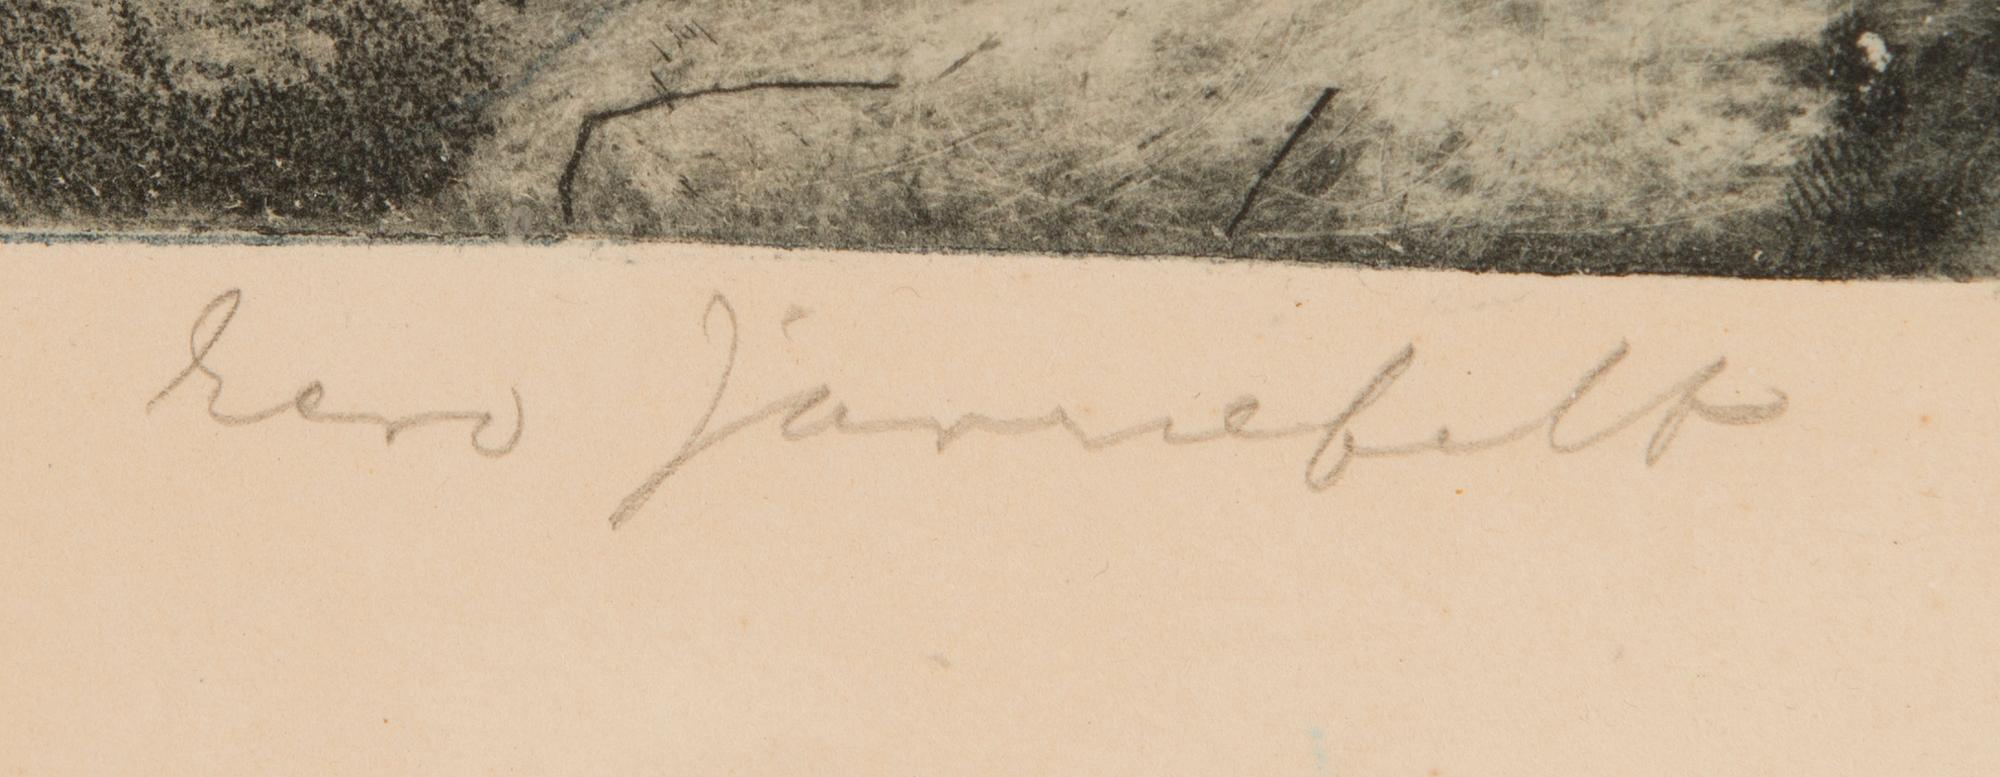 Eero Järnefelt